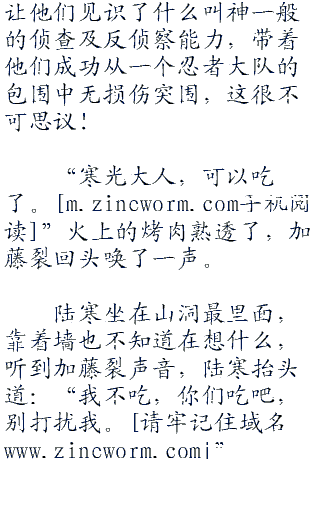 让他们见识了什么叫神一般
的侦查及反侦察能力，带着
他们成功从一个忍者大队的
包围中无损伤突围，这很不
可思议！
“寒光大人，可以吃
了。[m.zincworm.com手机阅
读]”火上的烤肉熟透了，加
藤裂回头唤了一声。
陆寒坐在山洞最里面，
靠着墙也不知道在想什么，
听到加藤裂声音，陆寒抬头
道：“我不吃，你们吃吧，
别打扰我。[请牢记住域名
www.zincworm.com]”